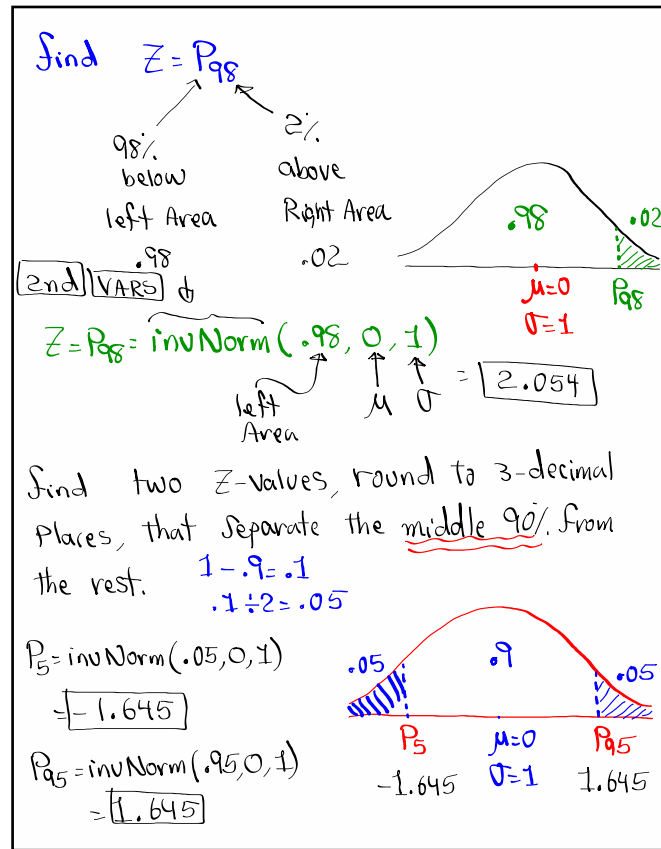 find Z = P98
98% below left Area .98
2% above Right Area .02
.98 .02
μ=0 P98
σ=1
2nd VARS ↓
Z = P98 = invNorm(.98, 0, 1)
left Area μ σ = 2.054
find two Z-values, round to 3-decimal
places, that separate the middle 90% from
the rest.
1 - .9 = .1
.1 ÷ 2 = .05
P5 = invNorm(.05, 0, 1)
= -1.645
P95 = invNorm(.95, 0, 1)
= 1.645
.05 .9 .05
P5 μ=0 P95
-1.645 σ=1 1.645